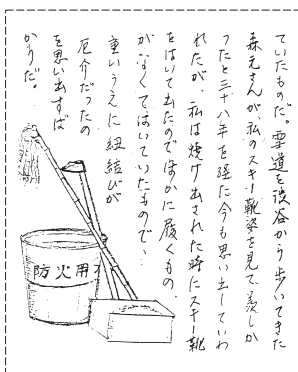 ていたものだ。雪道を渋谷から歩いてきた
森元さんが、私のスキー靴姿を見て、羨しか
ったと三十八年を経た今も思い出していわ
れたが、私は焼け出された時にスキー靴
をはいて出たのでほかに履くもの
がなくてはいていたもので、
重いうえに紐結びが
厄介だったの
を思い出すば
かりだ。
防火用